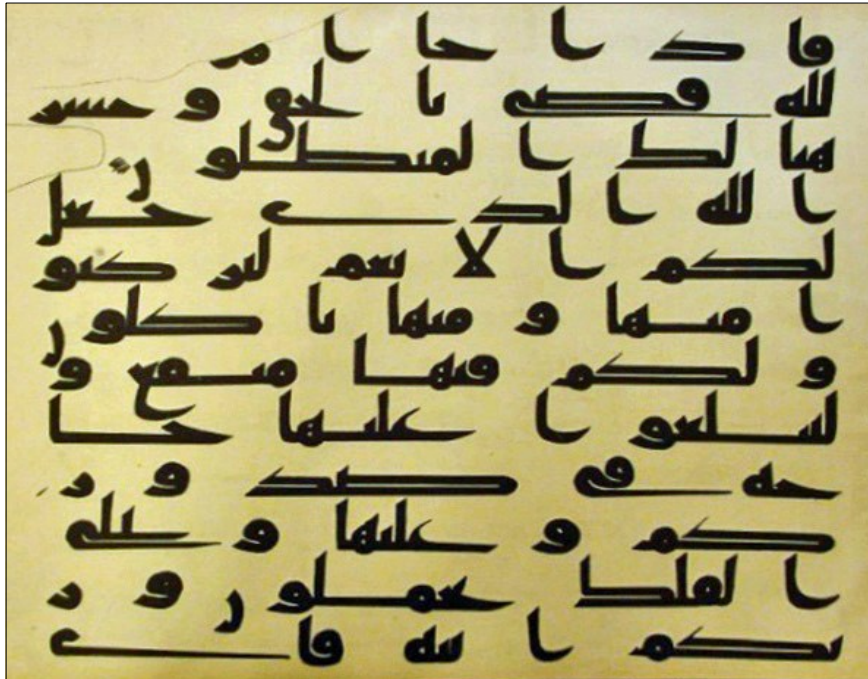 فاذا جا امر
لله قضى بالحق وخسر
هنالك المبطلون
الله الذى جعل
لكم الانعم لتركبو
ا منها ومنها تاكلون
ولكم فيها منفع و
لتبلغوا عليها حا
جه فى صدور
كم وعليها وعلى
الفلك تحملون وير
يكم ايته فاى